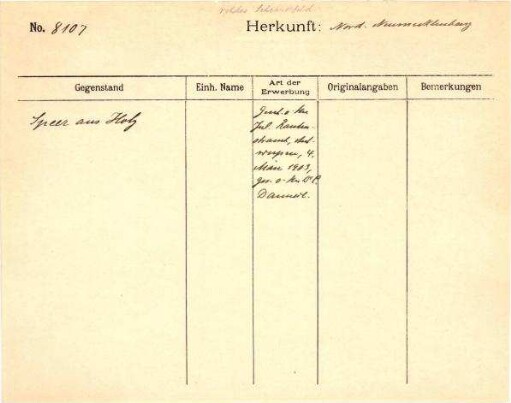 No. 8107
Herkunft: Nord. Neumecklenburg
Gegenstand
Einh. Name
Art der
Erwerbung
Originalangaben
Bemerkungen
Speer aus Holz
Gesch. v. Hn.
Jul. Rauten-
strauch, Ant-
werpen, 4.
März 1903,
ges. v. Hn. Dr. P.
Danneil.